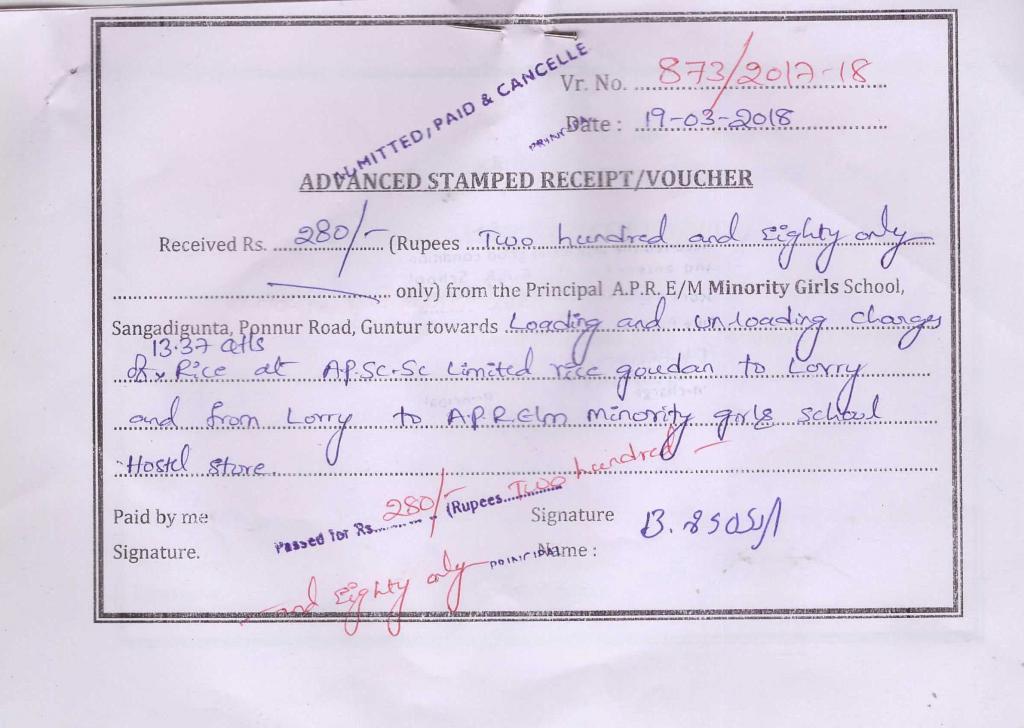 ADMITTED, PAID & CANCELLE
Vr. No. 873/2017-18
Date : 19-03-2018
ADVANCED STAMPED RECEIPT/VOUCHER
Received Rs. 280/- (Rupees Two hundred and Eighty only
only) from the Principal A.P.R. E/M Minority Girls School,
Sangadigunta, Ponnur Road, Guntur towards Loading and unloading charges
13.37 qtls
of Rice at A.P.SC.SC Limited rice goudan to Lorry
and from Lorry to A.P.R.E/m minority girls school
Hostel store
Passed for Rs. 280/- (Rupees Two hundred
and Eighty only
PRINCIPAL
Paid by me
Signature.
Signature B.
Name :